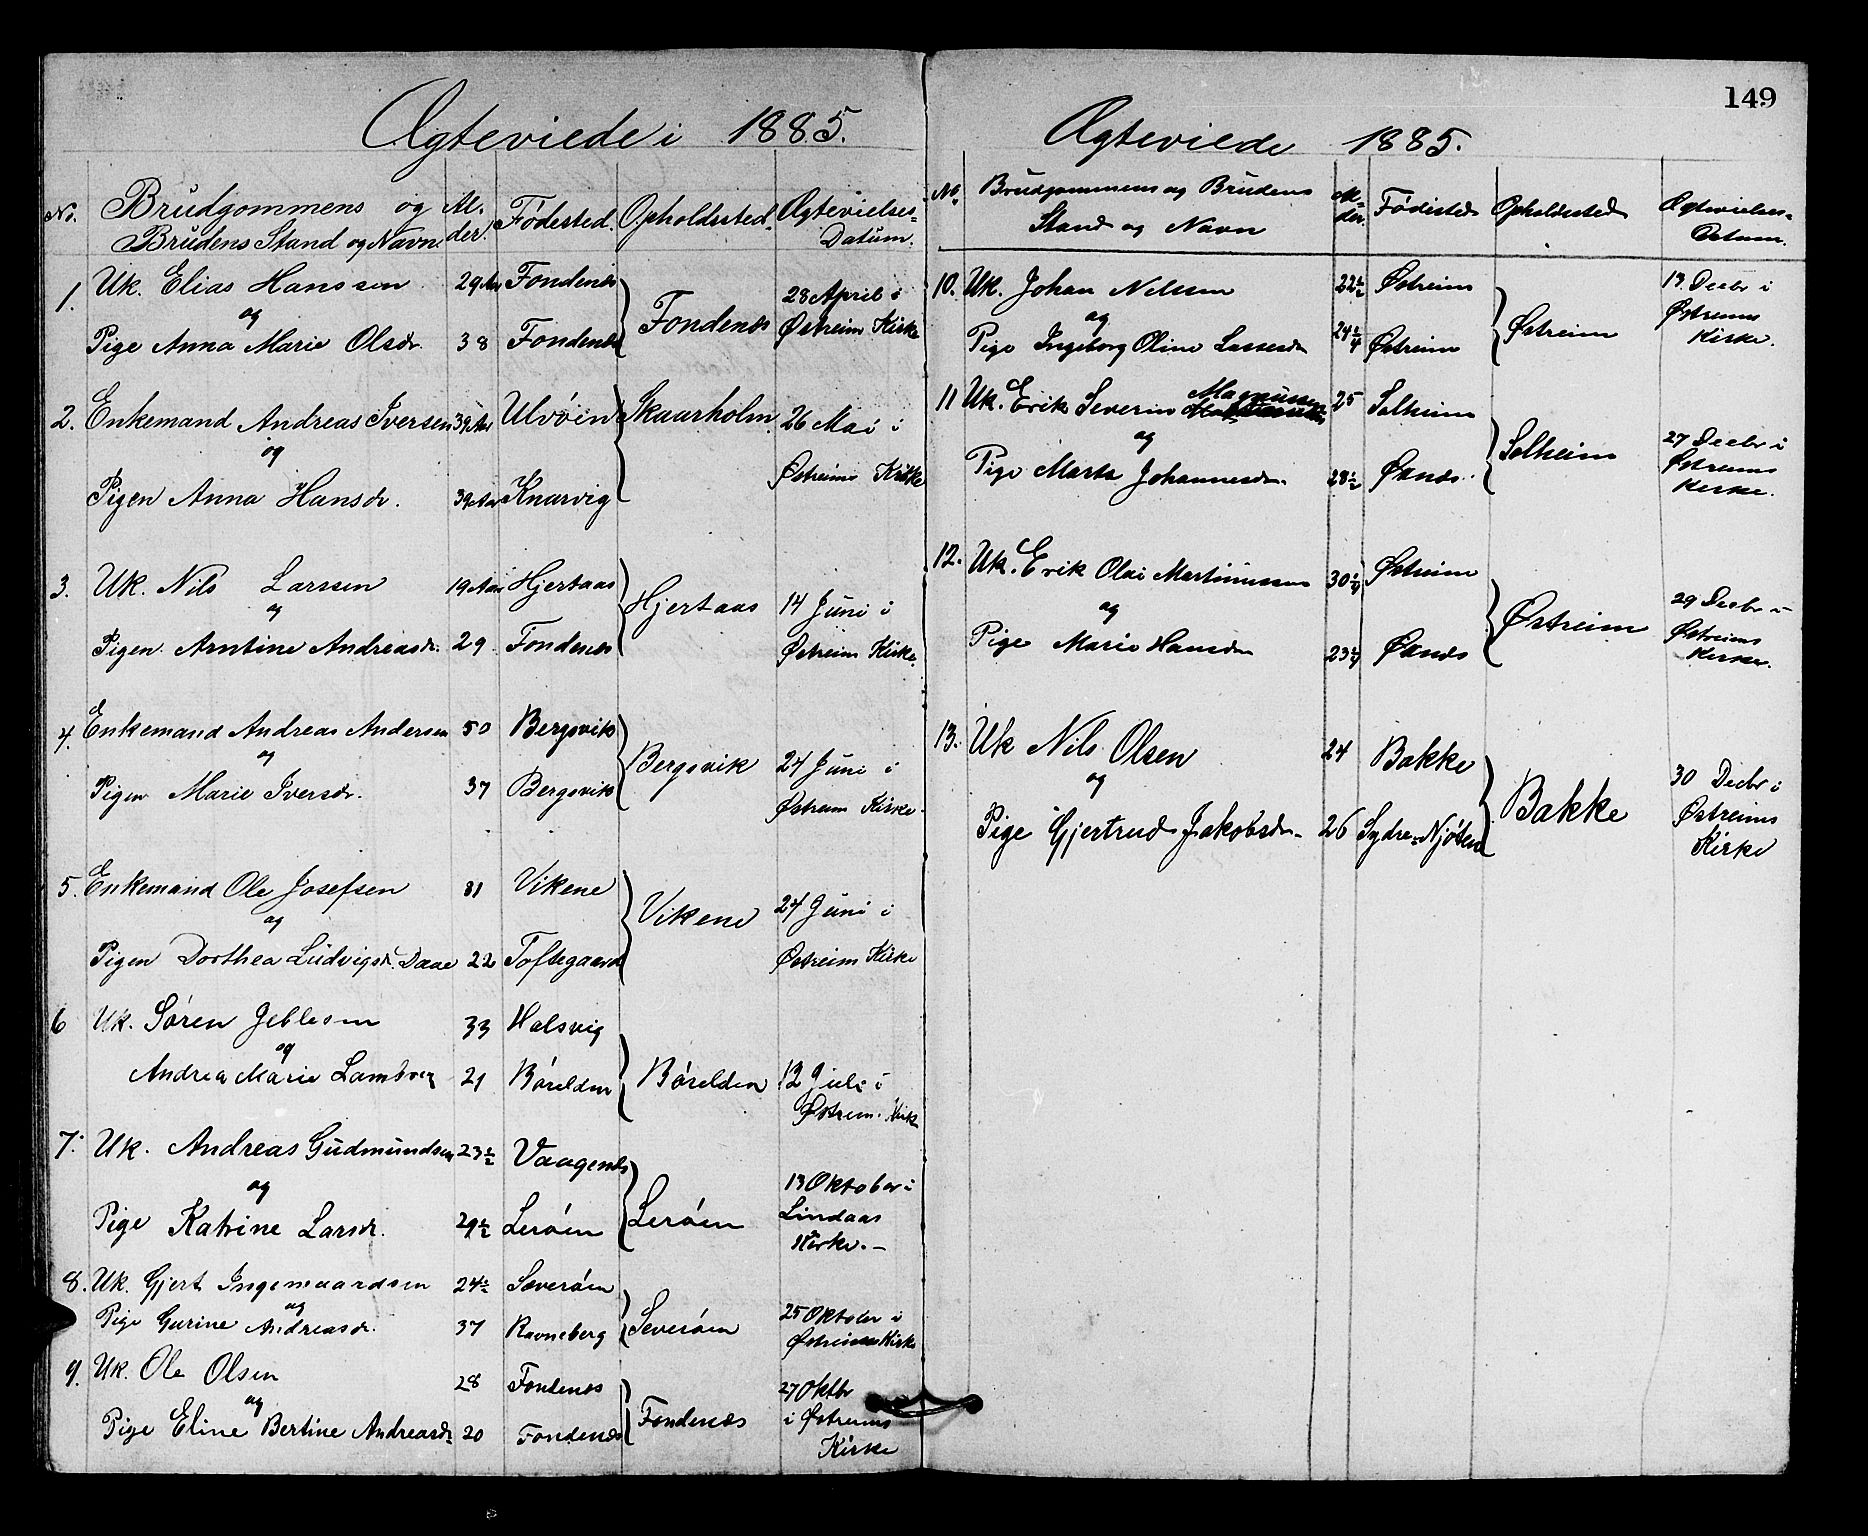 149
Ægteviede i 1885.
No. Brudgommens og Brudens Stand og Navn Al-der. Födested. Opholdssted. Ægtevielses-Datum.
1. Uk. Elias Hanssen 29 Aar Fondenæs Fondenæs 28 April i
og Østreim Kirke
Pige Anna Marie Olsdr. 38 Fondenæs
2. Enkemand Andreas Iversen 39 Aar Ulvöen Skaarholm. 26 Mai i
og Østreims Kirke
Pigen Anna Hansdr. 39 Aar Knarvig
3. Uk. Nils Larssen 19 Aar Hjertaas Hjertaas 14 Juni i
og Østreim Kirke.
Pigen Arntine Andreasdr. 29. Fondenæs
4. Enkemand Andreas Andersen 50 Bergsvik Bergsvik 24 Juni i
og Østreim Kirke.
Pigen Marie Iversdr. 37 Bergsvik
5. Enkemand Ole Josefsen 31 Vikene Vikene 24 Juni i
og Østreim Kirke
Pigen Dorthea Ludvigsdr. Daae 22 Toftegaard
6 Uk. Sören Jeblesen 33 Halsvig Börelden 12 Juli i
og Østreim. Kirke
Andrea Marie 21 Börelden
7. Uk. Andreas Gudmundsen 23½ Vaagenæs Leröen 13 Oktober i
og Lindaas
Pige Katrine Larsdr. 29½ Leröen Kirke.-
8. Uk. Gjert Ingemaardsen 24½ Sæveröen Severöen 25 Oktober i
og Østreims Kirke
Pige Gurine Andreasdr. 37 Ravneberg
9. Uk. Ole Olsen 28 Fondenæs Fondenæs 27 Oktbr
og i Østreims
Pige Eline Bertine Andreasdr 20 Fondenæs Kirke
Ægteviede 1885.
No. Brudgommens og Brudens Stand og Navn Al-der. Födested Opholdssted Ægtevielses-Datum.
10. Uk. Johan Nilssen 22½ Østreim Østreim 13. Decbr i
og Østreims
Pige Ingeborg Oline Lassesdr Østreim Kirke.
11 Uk. Erik Severin Magnussen 25 Solheim Solheim 27 Decbr i
og Østreims
Pige Marta Johannesdr. 28½ Øxnes. Kirke.
12. Uk. Erik Olai Martinussen Østreim Østreim 29 Decbr i
og Østreims
Pige Marie Hansdr Øxnes Kirke.
13. Uk Nils Olsen 24 Bakke Bakke 30 Decbr i
og Østreims
Pige Gjertrud Jakobsdr. 26 Sydre-Njöten Kirke